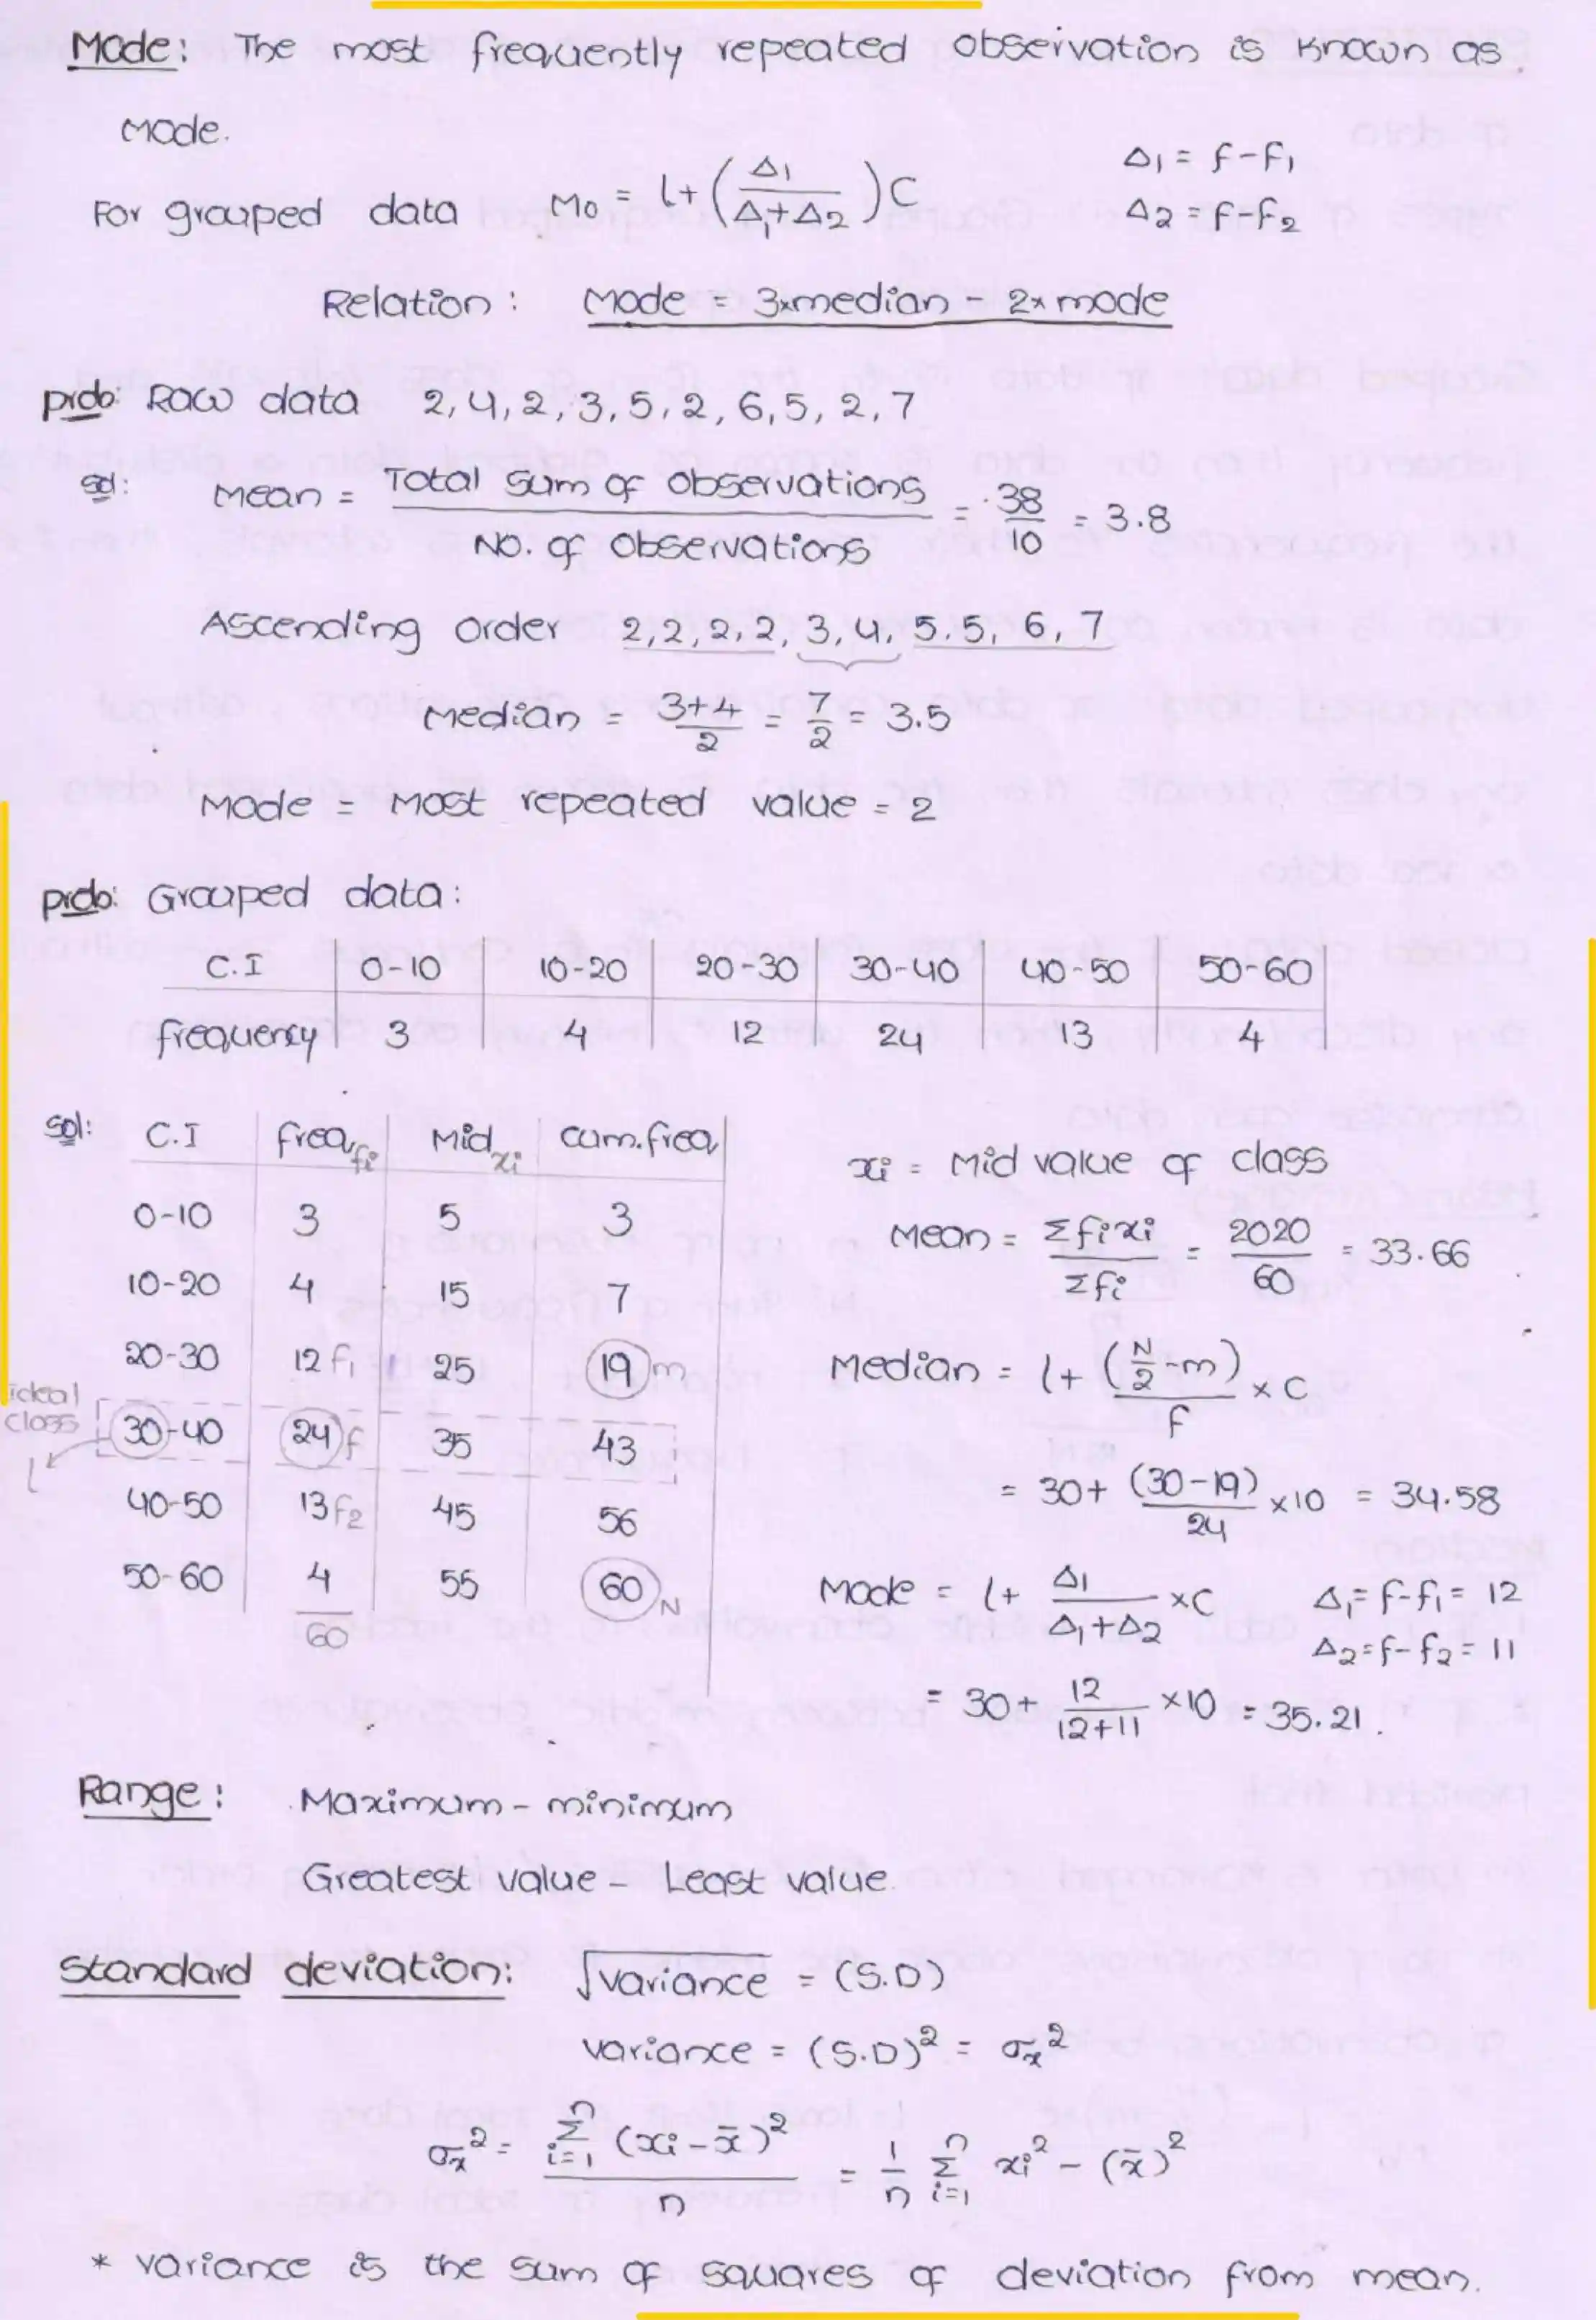 Mode: The most frequently repeated observation is known as
mode.
For grouped data Mo = l+(Δ1/(Δ1+Δ2))C Δ1 = f-f1
Δ2 = f-f2
Relation: Mode = 3×median - 2×mode
prob: Raw data 2,4,2,3,5,2,6,5,2,7
sol: Mean = Total sum of observations / No. of observations = 38/10 = 3.8
Ascending order 2,2,2,2,3,4,5,5,6,7
Median = (3+4)/2 = 7/2 = 3.5
Mode = most repeated value = 2
prob: Grouped data:
C.I 0-10 10-20 20-30 30-40 40-50 50-60
frequency 3 4 12 24 13 4
sol: C.I freq fi Mid xi cum.freq
0-10 3 5 3
10-20 4 15 7
20-30 12 f1 25 19 m
ideal class l 30-40 24 f 35 43
40-50 13 f2 45 56
50-60 4 55 60 N
60
xi = Mid value of class
Mean = Σfixi/Σfi = 2020/60 = 33.66
Median = l+ (N/2-m)/f × C
= 30+ (30-19)/24 ×10 = 34.58
Mode = l+ Δ1/(Δ1+Δ2) ×C Δ1= f-f1= 12
Δ2=f-f2= 11
= 30+ 12/(12+11) ×10 = 35.21.
Range: Maximum - minimum
Greatest value - Least value
Standard deviation: √variance = (S.D)
variance = (S.D)² = σx²
σx² = Σ i=1 n (xi - x̄)² / n = 1/n Σ i=1 n xi² - (x̄)²
* variance is the sum of squares of deviation from mean.